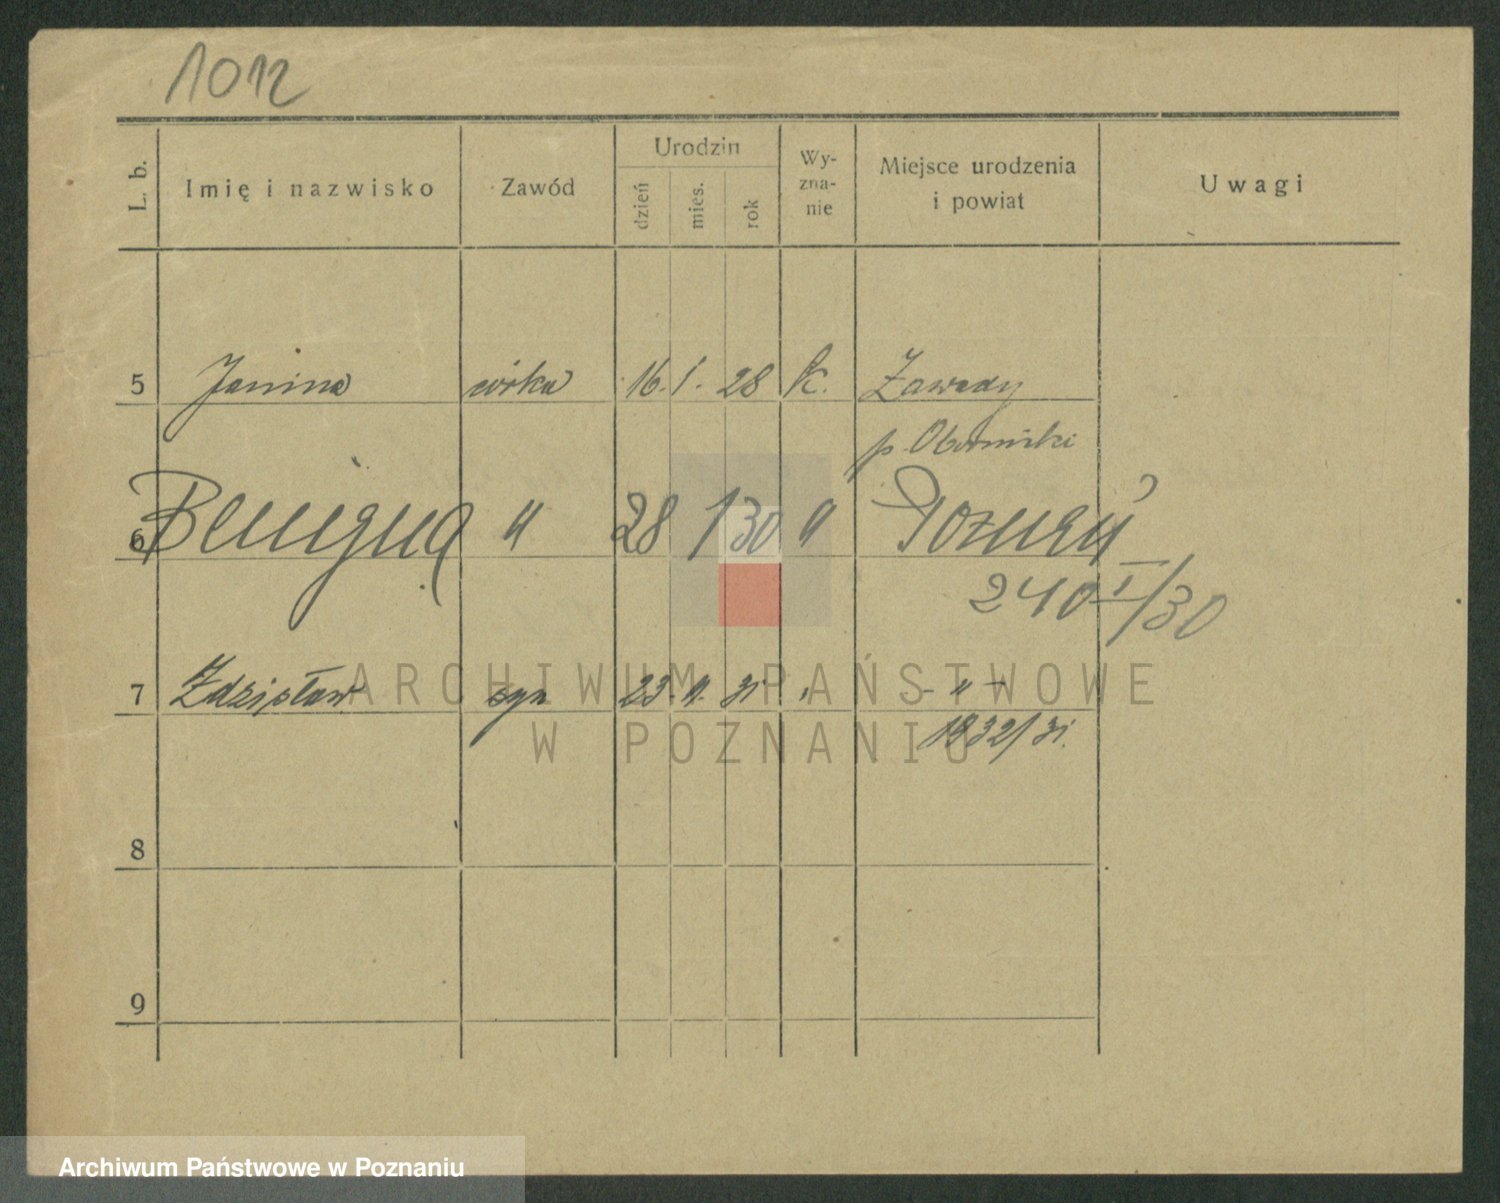 1012
L. b. Imię i nazwisko Zawód Urodzin dzień mies. rok Wy-zna-nie Miejsce urodzenia i powiat Uwagi
5 Janina córka 16. 1. 28 k. Zawady
p. Obornicki
6 Benigna " 28 1 30 " Poznań
240 I/30
7 Zdzisław syn 23. 31 " - " -
1832/31.
8
9
ARCHIWUM PAŃSTWOWE
W POZNANIU
Archiwum Państwowe w Poznaniu